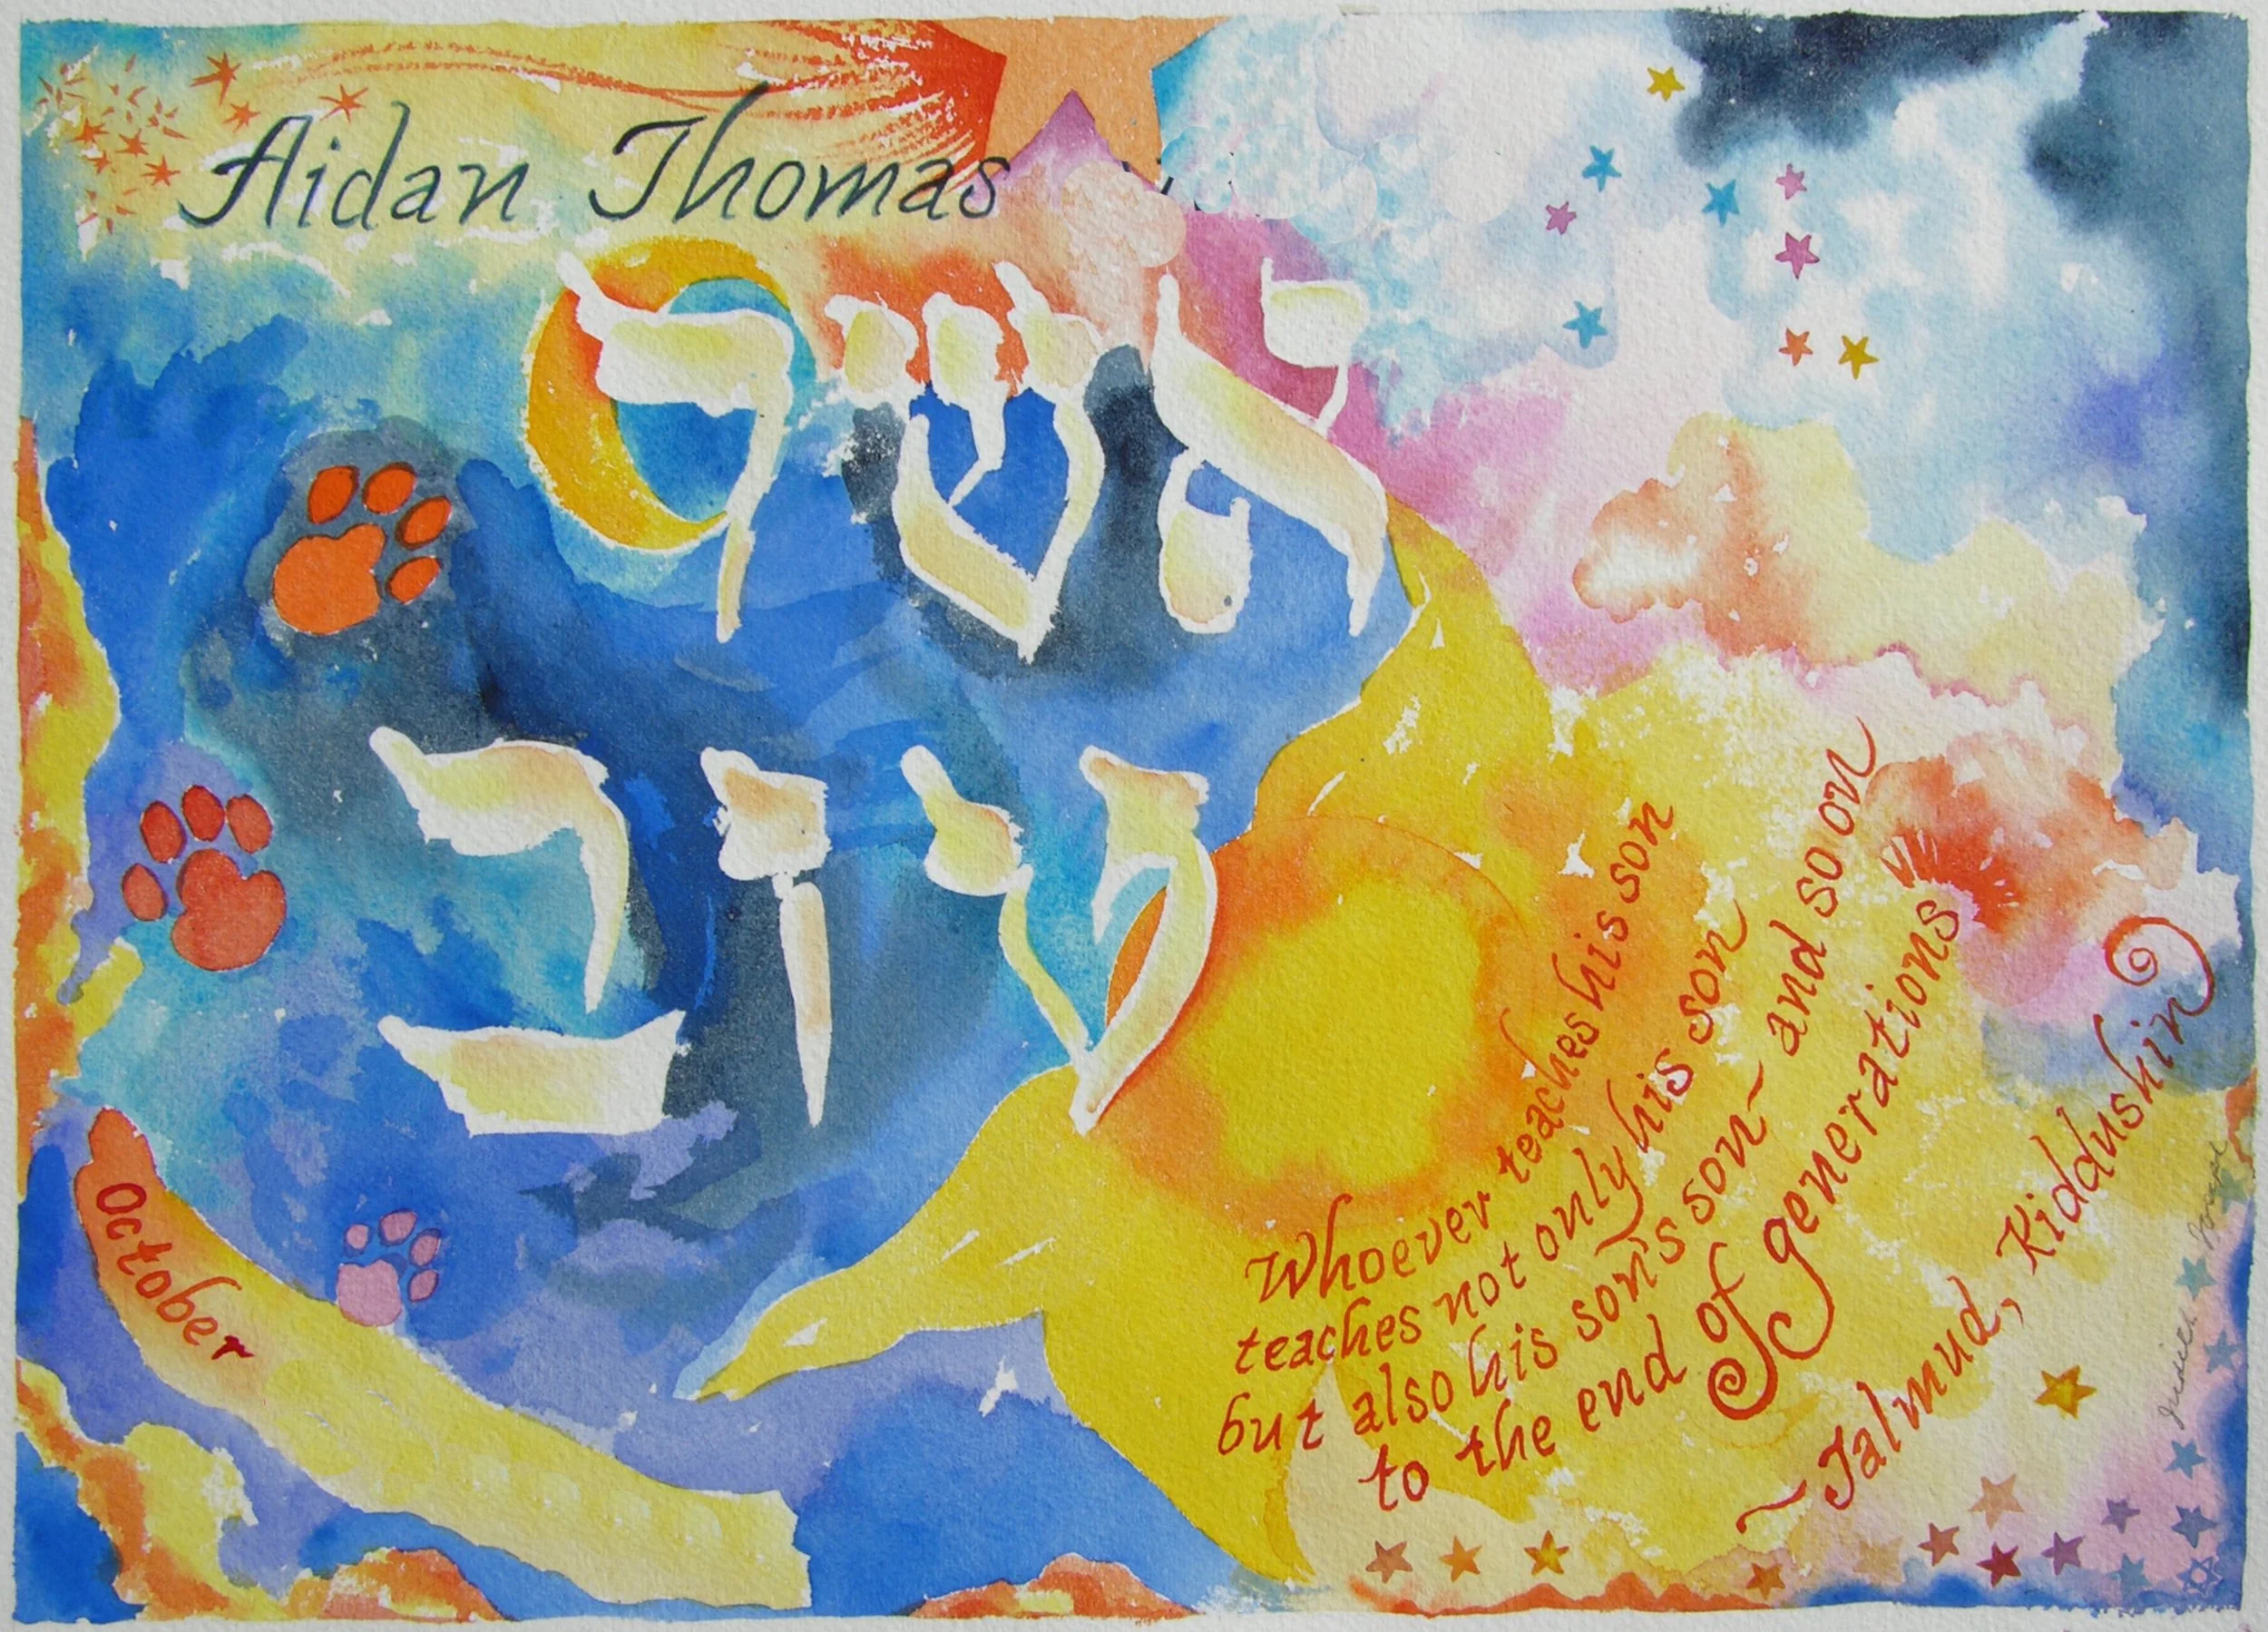 Aidan Thomas
אשר
טוב
October
Whoever teaches his son
teaches not only his son
but also his son's son~ and so on
to the end of generations
~Talmud, Kiddushin
Judith Joseph